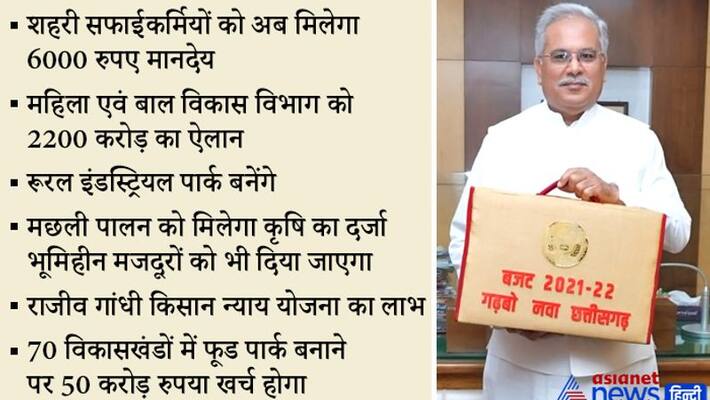 ▪ शहरी सफाईकर्मियों को अब मिलेगा
6000 रुपए मानदेय
▪ महिला एवं बाल विकास विभाग को
2200 करोड़ का ऐलान
▪ रूरल इंडस्ट्रियल पार्क बनेंगे
▪ मछली पालन को मिलेगा कृषि का दर्जा
भूमिहीन मजदूरों को भी दिया जाएगा
▪ राजीव गांधी किसान न्याय योजना का लाभ
▪ 70 विकासखंडों में फूड पार्क बनाने
पर 50 करोड़ रुपया खर्च होगा
बजट 2021-22
गढ़बो नवा छत्तीसगढ़
asianet
news हिन्दी